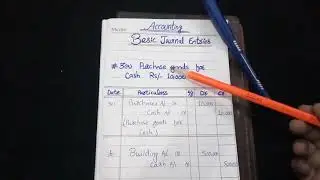 Accounting
Basic Journal Entries
Purchase goods for
Cash Rs/- 10000
Date Particulars Dr Cr
Purchases A/c Dr 10,000
Cash A/c Cr 10,000
(Purchase goods for
Cash)
Building A/c Dr
Cash A/c Cr